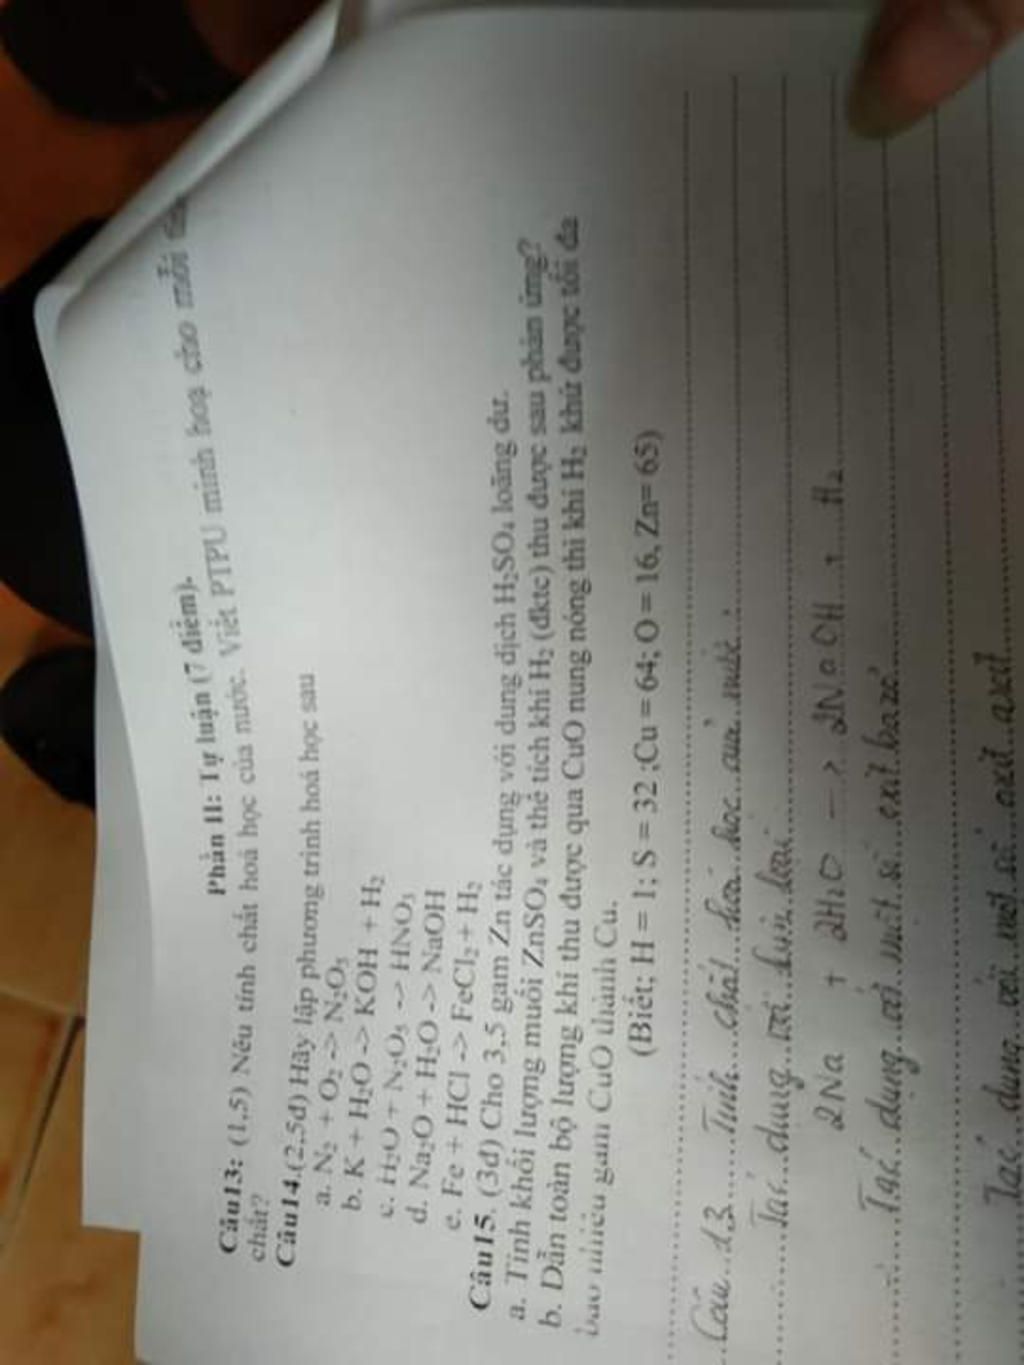 Phần II: Tự luận (7 điểm).
Câu13: (1,5) Nêu tính chất hoá học của nước. Viết PTPU minh hoạ cho mỗi
chất?
Câu14.(2.5đ) Hãy lập phương trình hoá học sau
a. N₂ + O₂ -> N₂O₅
b. K + H₂O -> KOH + H₂
c. H₂O + N₂O₅ -> HNO₃
d. Na₂O + H₂O -> NaOH
e. Fe + HCl -> FeCl₂ + H₂
Câu15. (3đ) Cho 3,5 gam Zn tác dụng với dung dịch H₂SO₄ loãng dư.
a. Tính khối lượng muối ZnSO₄ và thể tích khí H₂ (đktc) thu được sau phản ứng?
b. Dẫn toàn bộ lượng khí thu được qua CuO nung nóng thì khí H₂ khử được tối đa
bao nhiêu gam CuO thành Cu.
(Biết; H = 1; S = 32 ;Cu = 64; O = 16, Zn= 65)
Câu 13. Tính chất hoá học của nước.
Tác dụng với kim loại
2Na + 2H₂O -> 2NaOH + H₂
Tác dụng với một số oxit bazơ
Tác dụng với một số oxit axit